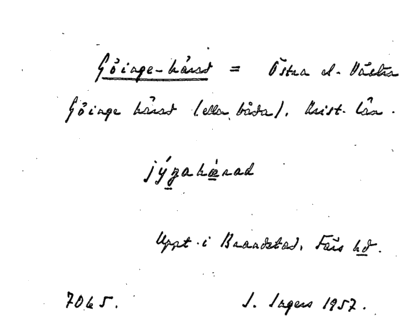 Göinge-härad = Östra el. Västra
Göinge härad (eller båda), Krist. län.
jýŋahærad
Uppt. i Brandstad, Färs hd.
7065. I. Ingers 1957.